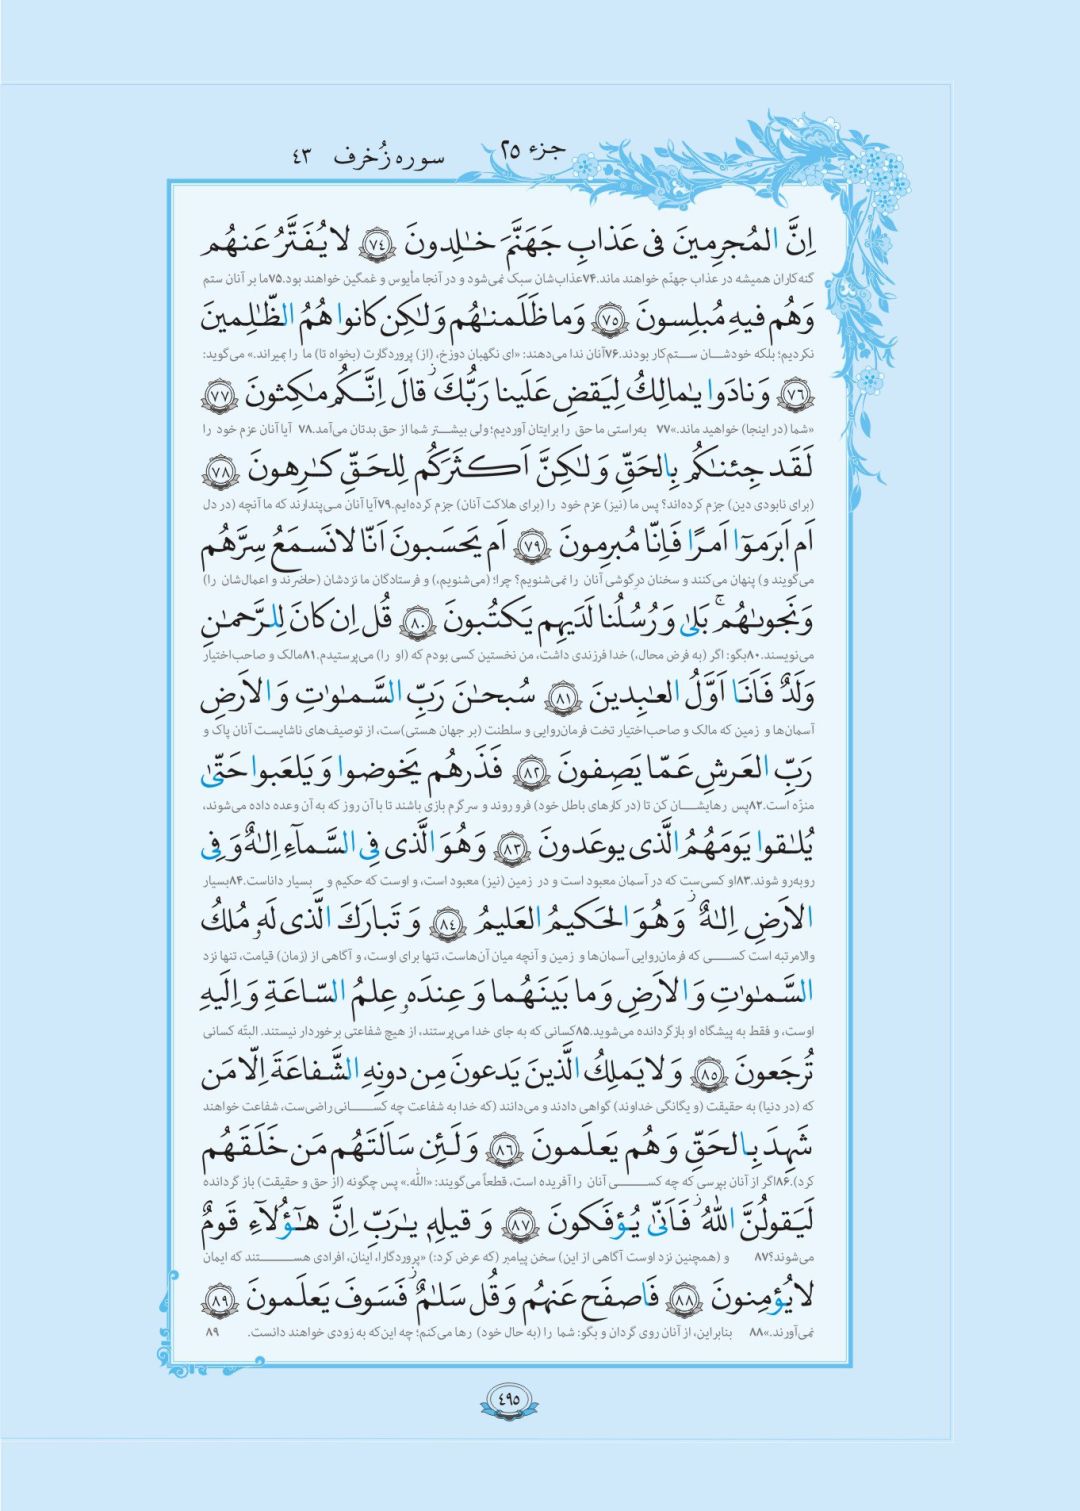 جزء ۲۵
سوره زُخرف ۴۳
اِنَّ المُجرِمينَ فى عَذابِ جَهَنَّمَ خـٰلِدونَ ﴿٧٤﴾ لا يُفَتَّرُ عَنهُم
گنه‌کاران همیشه در عذاب جهنّم خواهند ماند.۷۴عذاب‌شان سبک نمی‌شود و در آنجا مأیوس و غمگین خواهند بود.۷۵ما بر آنان ستم
وَهُم فيهِ مُبلِسونَ ﴿٧٥﴾ وَما ظَلَمنـٰهُم وَلـٰكِن كانوا هُمُ الظّـٰلِمينَ
نکردیم؛ بلکه خودشـان ستـم‌کار بودند.۷۶آنان ندا می‌دهند: «ای نگهبان دوزخ، (از) پروردگارت (بخواه تا) ما را بمیراند.» می‌گوید:
﴿٧٦﴾ وَنادَوا يـٰمالِكُ لِيَقضِ عَلَينا رَبُّكَ ۖ قالَ اِنَّكُم مـٰكِثونَ ﴿٧٧﴾
«شما (در اینجا) خواهید ماند.»۷۷ به‌راستی ما حق را برایتان آوردیم؛ ولی بیشـتر شما از حق بدتان می‌آمد.۷۸ آیا آنان عزم خود را
لَقَد جِئنـٰكُم بِالحَقِّ وَلـٰكِنَّ اَكـثَرَكُم لِلحَقِّ كـٰرِهونَ ﴿٧٨﴾
(برای نابودی دین) جزم کرده‌اند؟ پس ما (نیز) عزم خود را (برای هلاکت آنان) جزم کرده‌ایم.۷۹آیا آنان می‌پندارند که ما آنچه (در دل
اَم اَبرَموٓا اَمرًا فَاِنّا مُبرِمونَ ﴿٧٩﴾ اَم يَحسَبونَ اَنّا لا نَسمَعُ سِرَّهُم
می‌گویند و) پنهان می‌کنند و سخنان درگوشی آنان را نمی‌شنویم؟ چرا؛ (می‌شنویم،) و فرستادگان ما نزدشان (حاضرند و اعمال‌شان را)
وَنَجوىٰهُم ۚ بَلىٰ وَرُسُلُنا لَدَيهِم يَكتُبونَ ﴿٨٠﴾ قُل اِن كانَ لِلرَّحمـٰنِ
می‌نویسند.۸۰بگو: اگر (به فرض محال،) خدا فرزندی داشت، من نخستین کسی بودم که (او را) می‌پرستیدم.۸۱مالک و صاحب‌اختیار
وَلَدٌ فَاَنَا اَوَّلُ العـٰبِدينَ ﴿٨١﴾ سُبحـٰنَ رَبِّ السَّمـٰوٰتِ وَالاَرضِ
آسمان‌ها و زمین که مالک و صاحب‌اختیار تخت فرمان‌روایی و سلطنت (بر جهان هستی)ست، از توصیف‌های ناشایست آنان پاک و
رَبِّ العَرشِ عَمّا يَصِفونَ ﴿٨٢﴾ فَذَرهُم يَخوضوا وَيَلعَبوا حَتّىٰ
منزّه است.۸۲پس رهایشـان کن تا (در کارهای باطل خود) فرو روند و سرگرم بازی باشند تا با آن روز که به آن وعده داده می‌شوند،
يُلـٰقوا يَومَهُمُ الَّذى يوعَدونَ ﴿٨٣﴾ وَهُوَ الَّذى فِى السَّمآءِ اِلـٰهٌ وَفِى
روبه‌رو شوند.۸۳او کسی‌ست که در آسمان معبود است و در زمین (نیز) معبود است، و اوست که حکیم و بسیار داناست.۸۴بسیار
الاَرضِ اِلـٰهٌ ۖ وَهُوَ الحَكيمُ العَليمُ ﴿٨٤﴾ وَتَبارَكَ الَّذى لَهٗ مُلكُ
والامرتبه است کسـی که فرمان‌روایی آسمان‌ها و زمین و آنچه میان آن‌هاست، تنها برای اوست، و آگاهی از (زمان) قیامت، تنها نزد
السَّمـٰوٰتِ وَالاَرضِ وَما بَينَهُما وَعِندَهٗ عِلمُ السّاعَةِ وَاِلَيهِ
اوست، و فقط به پیشگاه او بازگردانده می‌شوید.۸۵کسانی که به جای خدا می‌پرستند، از هیچ شفاعتی برخوردار نیستند. البتّه کسانی
تُرجَعونَ ﴿٨٥﴾ وَلا يَملِكُ الَّذينَ يَدعونَ مِن دونِهِ الشَّفاعَةَ اِلّا مَن
که (در دنیا) به حقیقت (و یگانگی خداوند) گواهی دادند و می‌دانند (که خدا به شفاعت چه کسـانی راضی‌ست، شفاعت خواهند
شَهِدَ بِالحَقِّ وَهُم يَعلَمونَ ﴿٨٦﴾ وَلَئِن سَاَلتَهُم مَن خَلَقَهُم
کرد).۸۶اگر از آنان بپرسی که چه کسـی آنان را آفریده است، قطعاً می‌گویند: «الله.» پس چگونه (از حق و حقیقت) بازگردانده
لَيَقولُنَّ اللّٰهُ ۖ فَاَنّىٰ يُؤفَكونَ ﴿٨٧﴾ وَقيلِهٖ يـٰرَبِّ اِنَّ هـٰٓؤُلآءِ قَومٌ
می‌شوند؟۸۷ و (همچنین نزد اوست آگاهی از این) سخن پیامبر (که عرض کرد:) «پروردگارا، اینان، افرادی هسـتند که ایمان
لا يُؤمِنونَ ﴿٨٨﴾ فَاصفَح عَنهُم وَقُل سَلـٰمٌ ۖ فَسَوفَ يَعلَمونَ ﴿٨٩﴾
نمی‌آورند.»۸۸ بنابراین، از آنان روی گردان و بگو: شما را (به حال خود) رها می‌کنم؛ چه این‌که به زودی خواهند دانست. ۸۹
۴۹۵